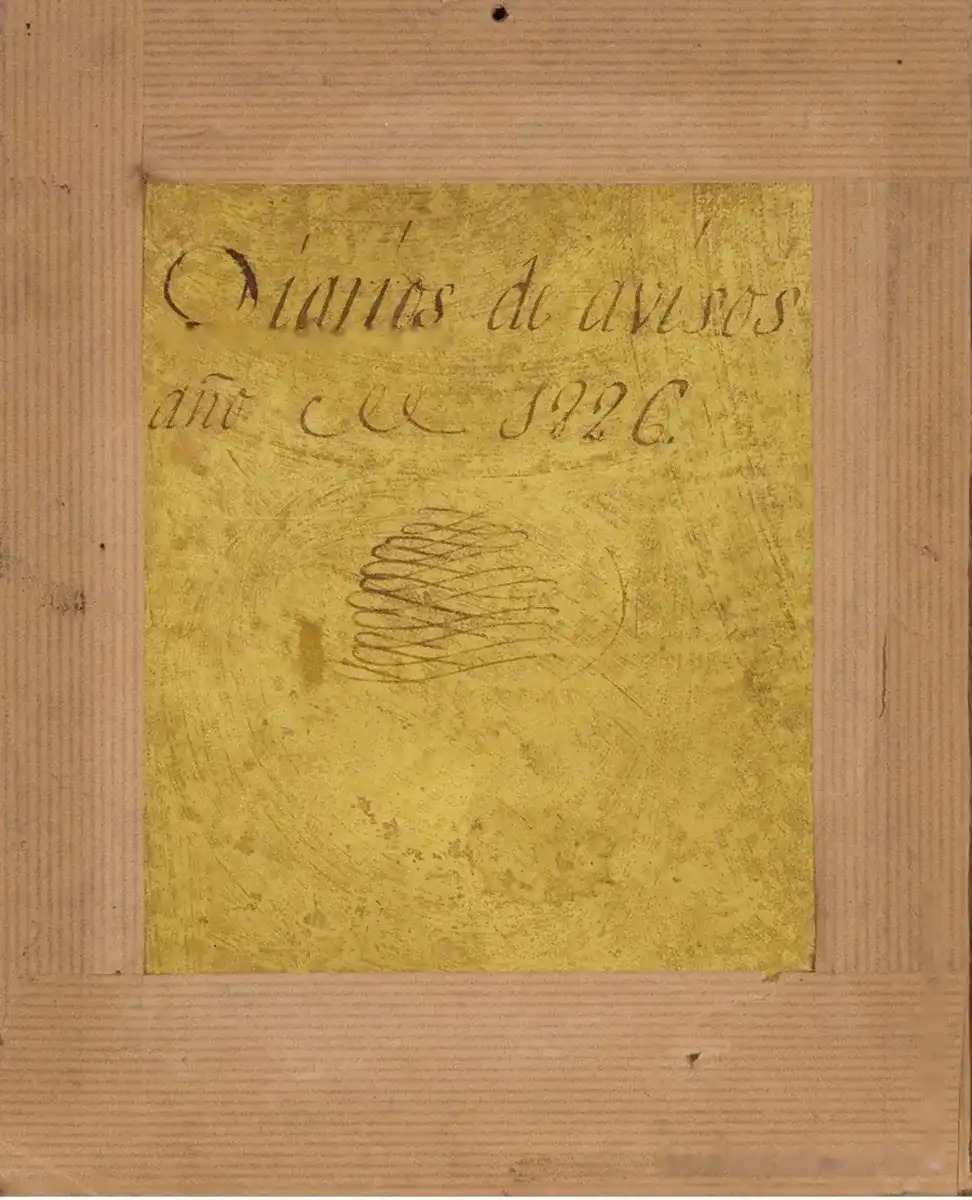 Diarios de avisos
año 1826.